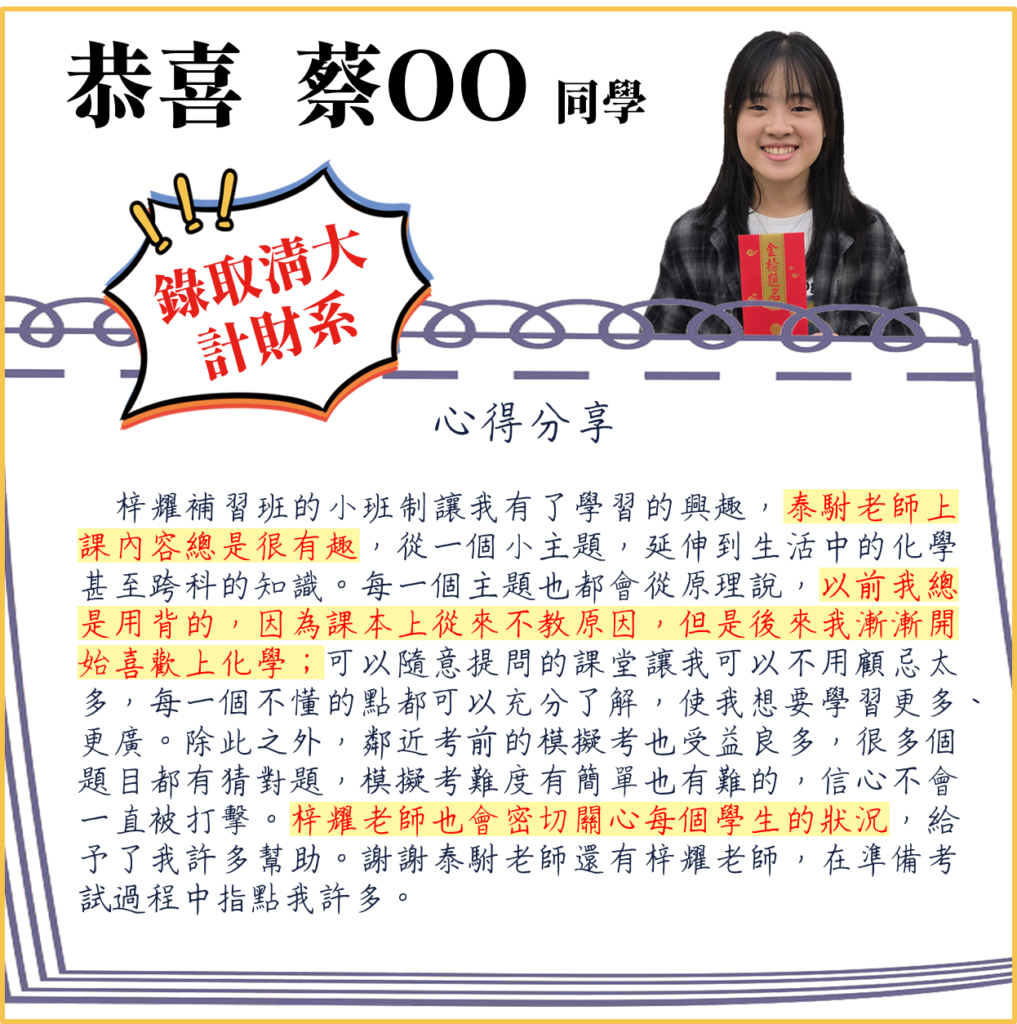 恭喜 蔡OO 同學
金榜題名
錄取清大
計財系
心得分享
梓耀補習班的小班制讓我有了學習的興趣，泰駙老師上
課內容總是很有趣，從一個小主題，延伸到生活中的化學
甚至跨科的知識。每一個主題也都會從原理說，以前我總
是用背的，因為課本上從來不教原因，但是後來我漸漸開
始喜歡上化學；可以隨意提問的課堂讓我可以不用顧忌太
多，每一個不懂的點都可以充分了解，使我想要學習更多、
更廣。除此之外，鄰近考前的模擬考也受益良多，很多個
題目都有猜對題，模擬考難度有簡單也有難的，信心不會
一直被打擊。梓耀老師也會密切關心每個學生的狀況，給
予了我許多幫助。謝謝泰駙老師還有梓耀老師，在準備考
試過程中指點我許多。